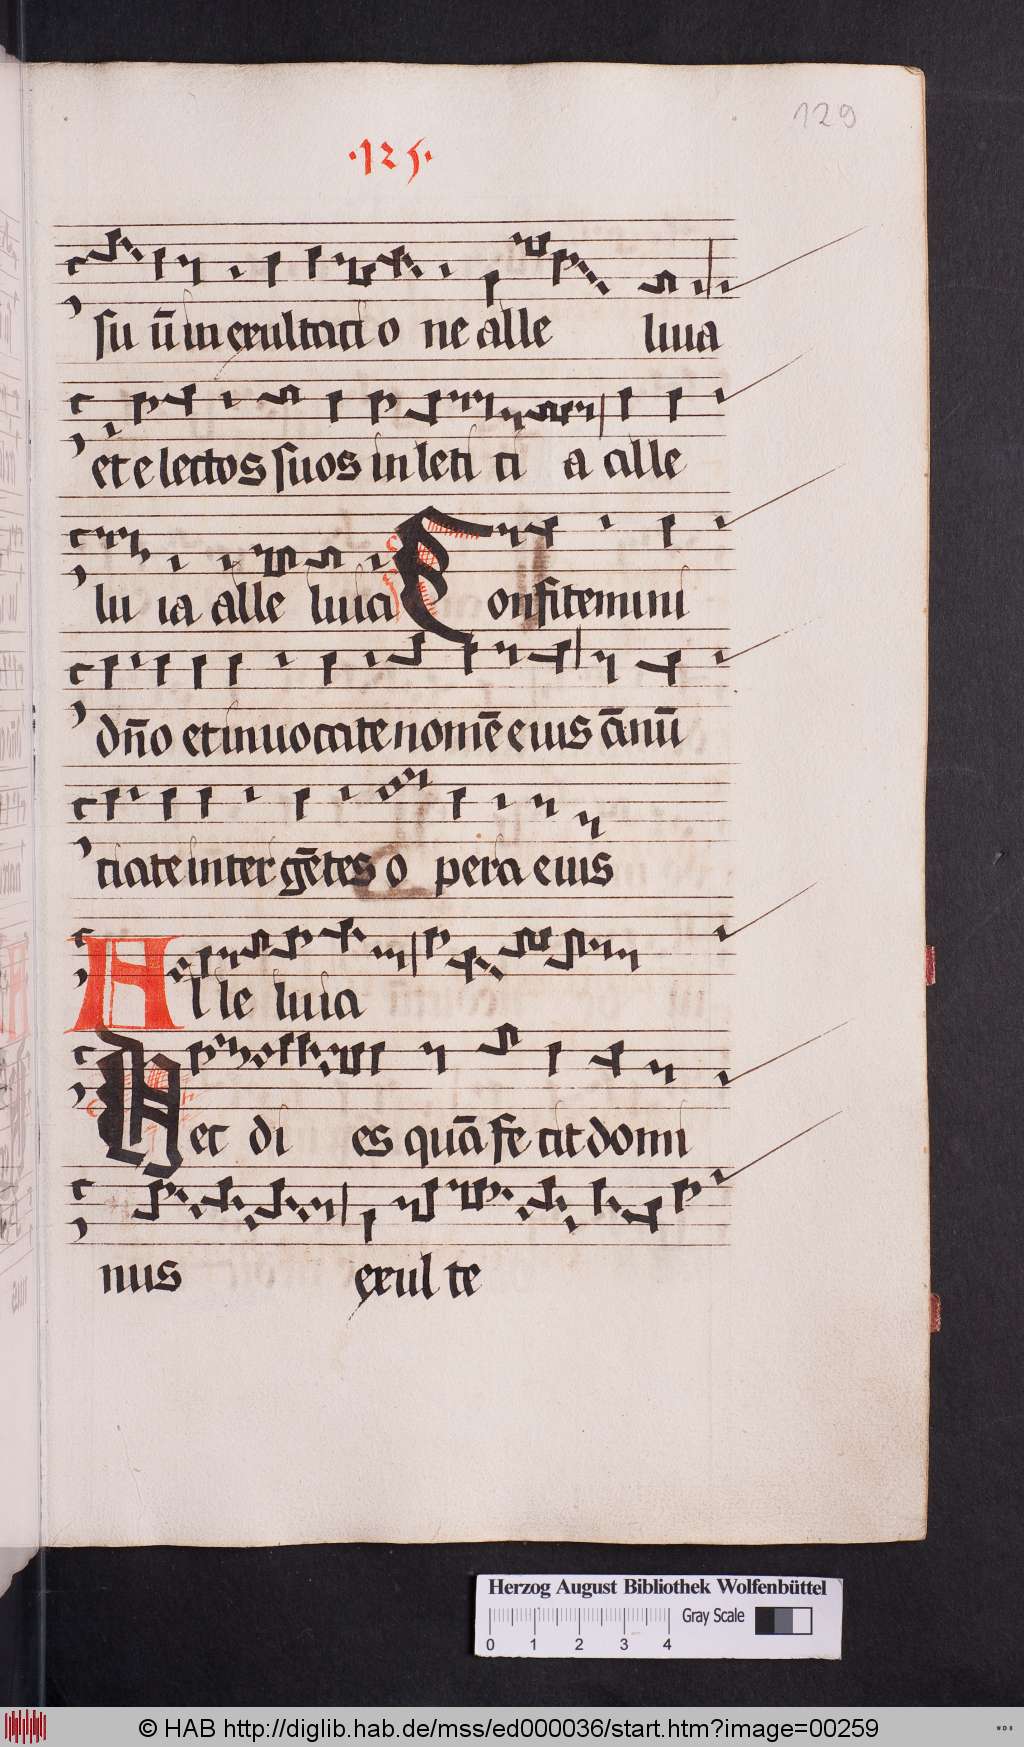 129
·125·
su ū in exultati o ne alle luia
et e lectos suos in leti ti a alle
lu ia alle luia Confitemini
dn̄o et inuocate nomē eius ānū
tiate inter gētes o pera eius
Alle luia
Hec di es quā fe cit domi
nus exul te
Herzog August Bibliothek Wolfenbüttel
Gray Scale
0 1 2 3 4
© HAB http://diglib.hab.de/mss/ed000036/start.htm?image=00259